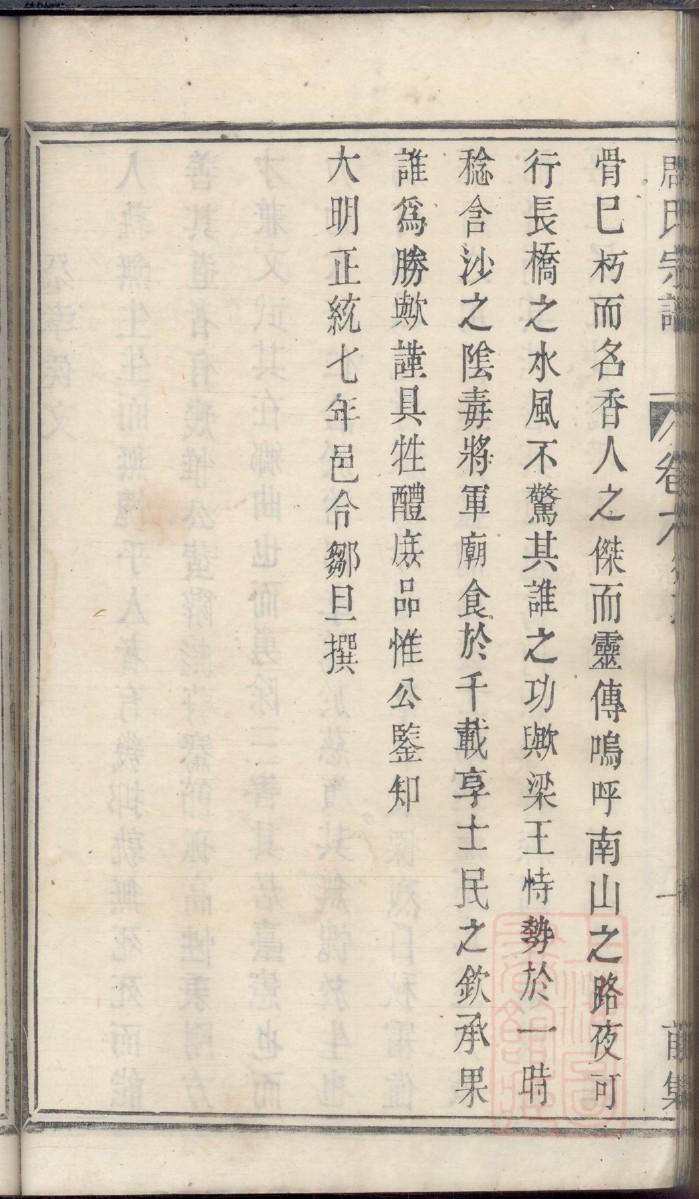 周氏宗譜 卷六 前集
骨巳朽而名香人之傑而靈傳嗚呼南山之路夜可
行長橋之水風不驚其誰之功歟梁王恃勢於一時
稔含沙之陰毒將軍廟食於千載享士民之欽承果
誰爲勝歟謹具牲醴庻品惟公鑒知
大明正統七年邑令鄒旦撰